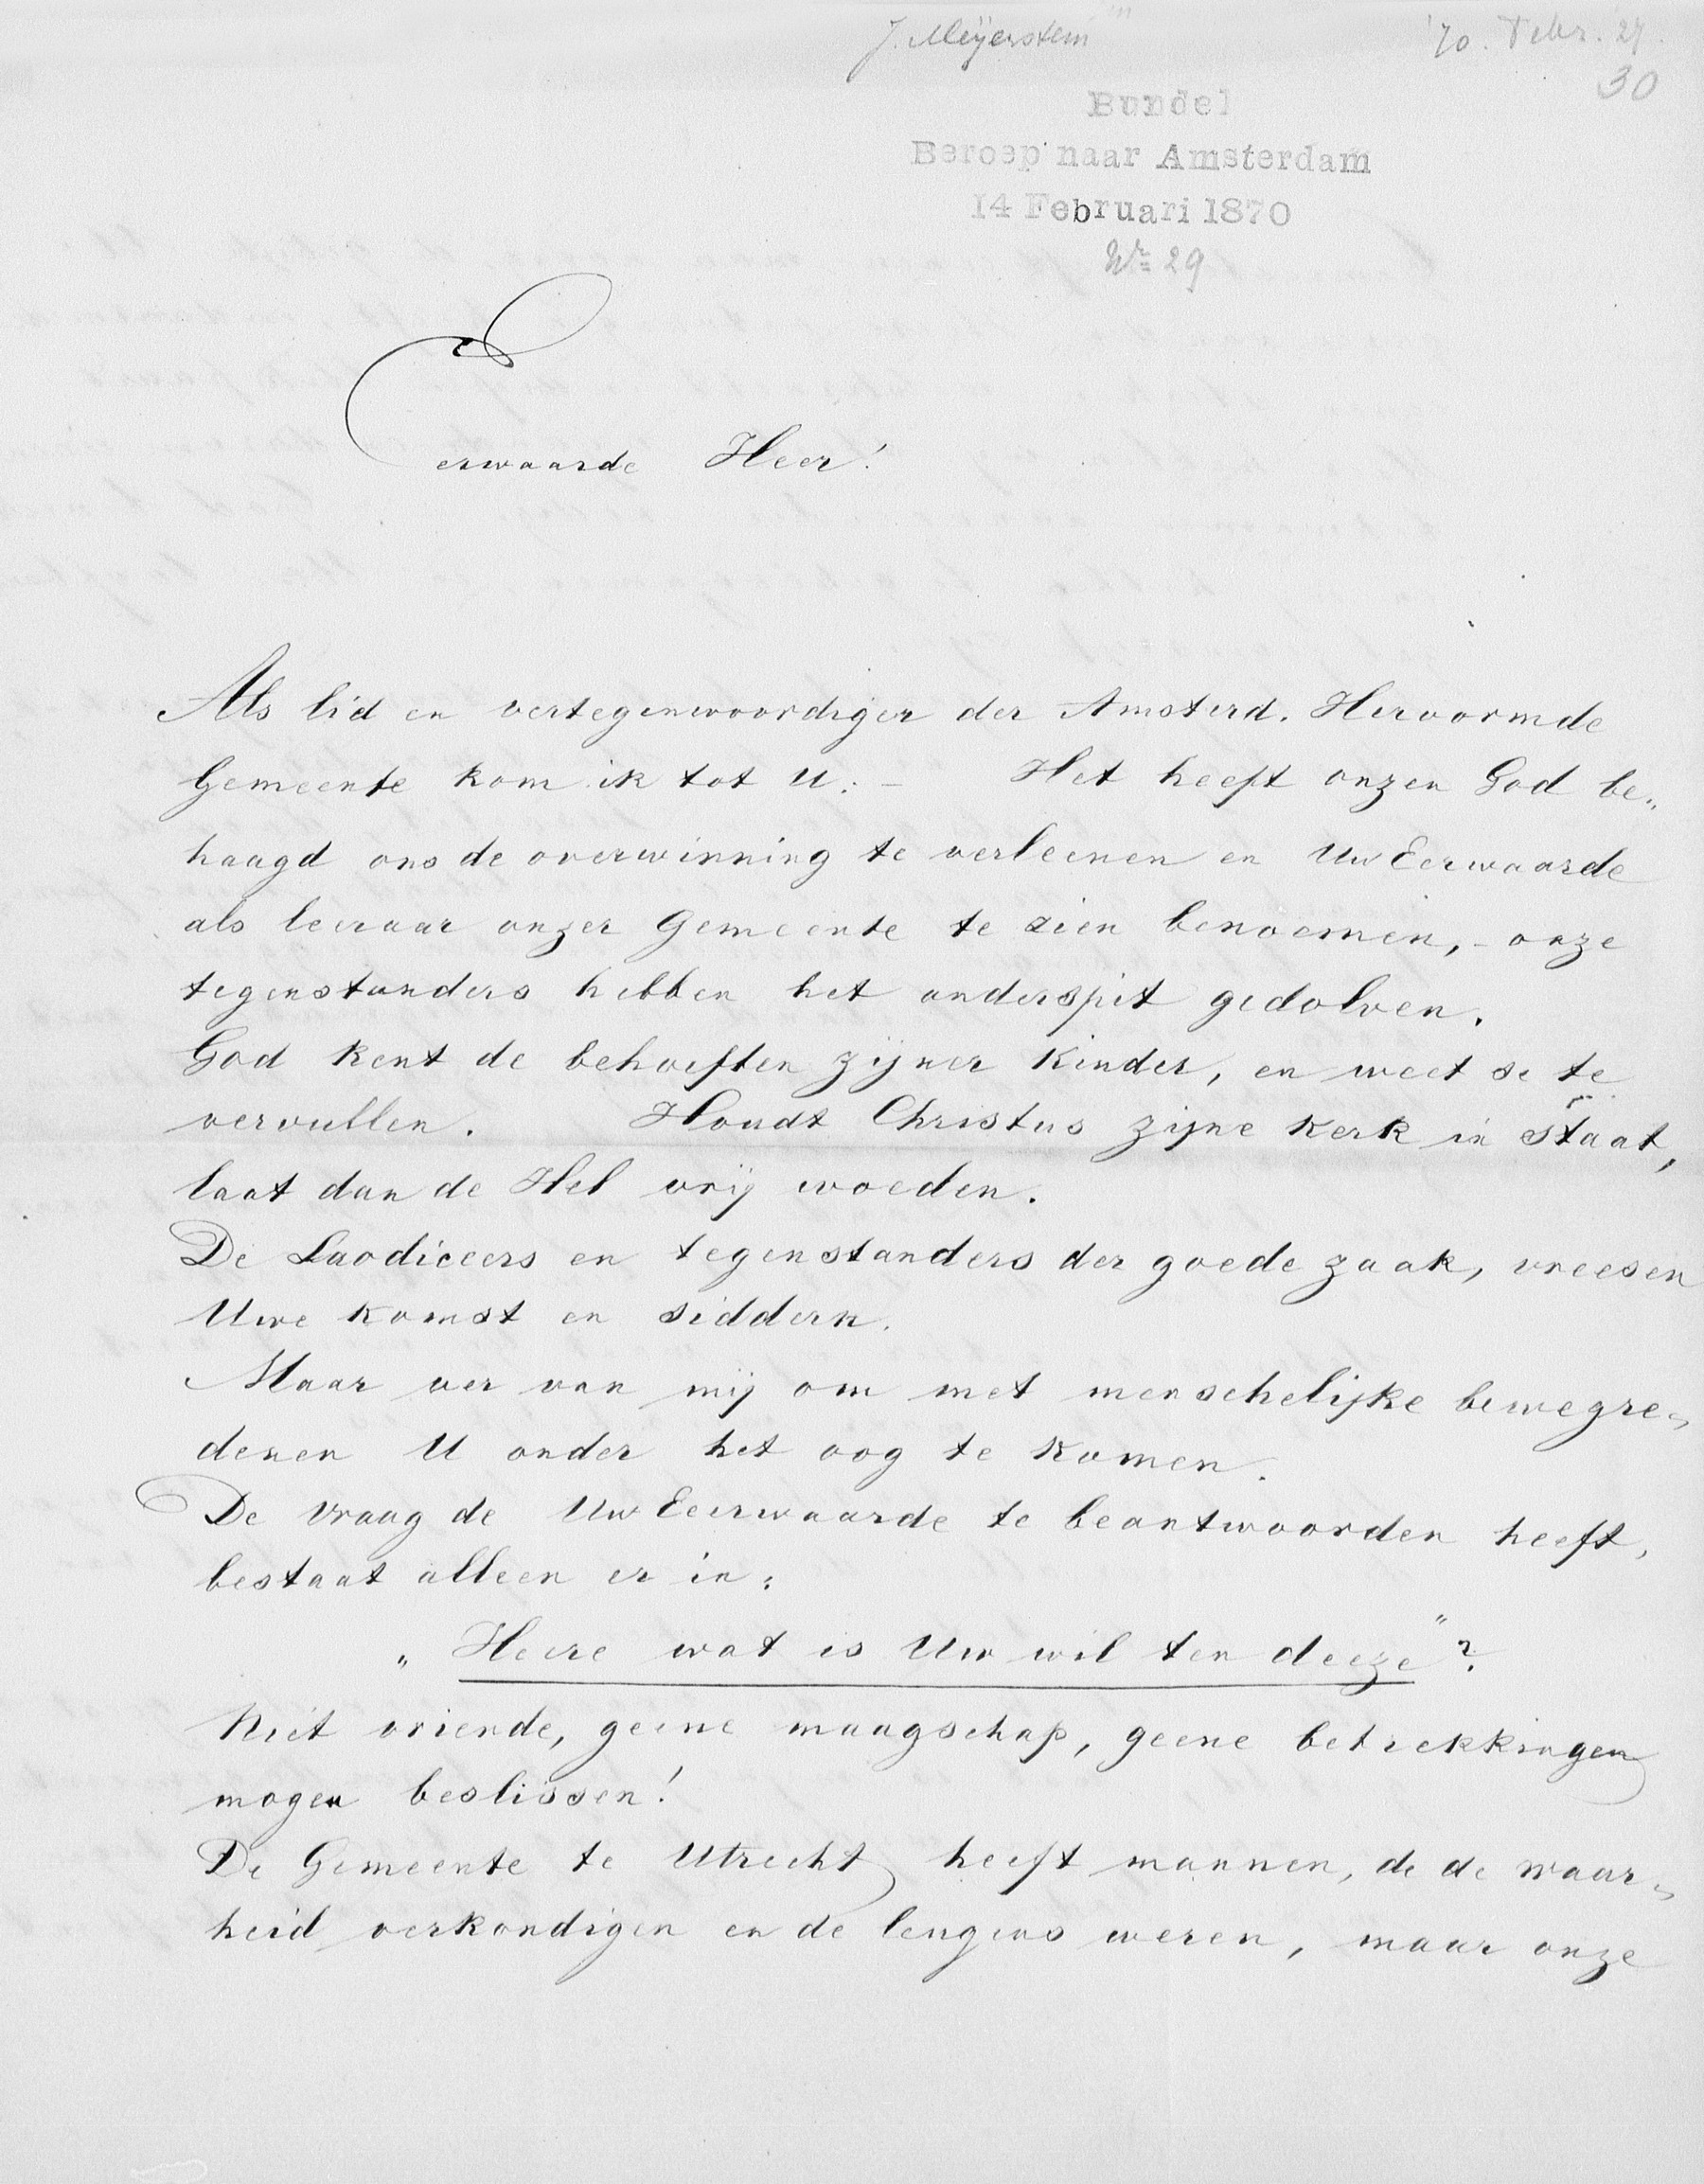 J. Meÿerstein
'70. Febr. 27.
30
Bundel
Beroep naar Amsterdam
14 Februari 1870
Nr 29
Eerwaarde Heer!
Als lid en vertegenwoordiger der Amsterd. Hervormde
Gemeente kom ik tot U: – Het heeft onzen God be„
haagd ons de overwinning te verleenen en Uw Eerwaarde
als leeraar onzer Gemeente te zien benoemen, – onze
tegenstanders hebben het onderspit gedolven.
God kent de behoeften zijner Kinder, en weet se te
vervullen. Houdt Christus zijne Kerk in Staat,
laat dan de Hel vrij woeden.
De Laodiceers en tegenstanders der goede zaak, vreesen
Uwe komst en siddern.
Maar ver van mij om met menschelijke bewegre„
denen U onder het oog te komen.
De Vraag de Uw Eeerwaarde te beantwoorden heeft,
bestaat alleen er in:
„Heere wat is Uw wil ten deeze"?
Niet vriende, geene maagschap, geene betrekkingen
mogen beslissen!
De Gemeente te Utrecht heeft mannen, de de waar„
heid verkondigen en de leugens weren, maar onze